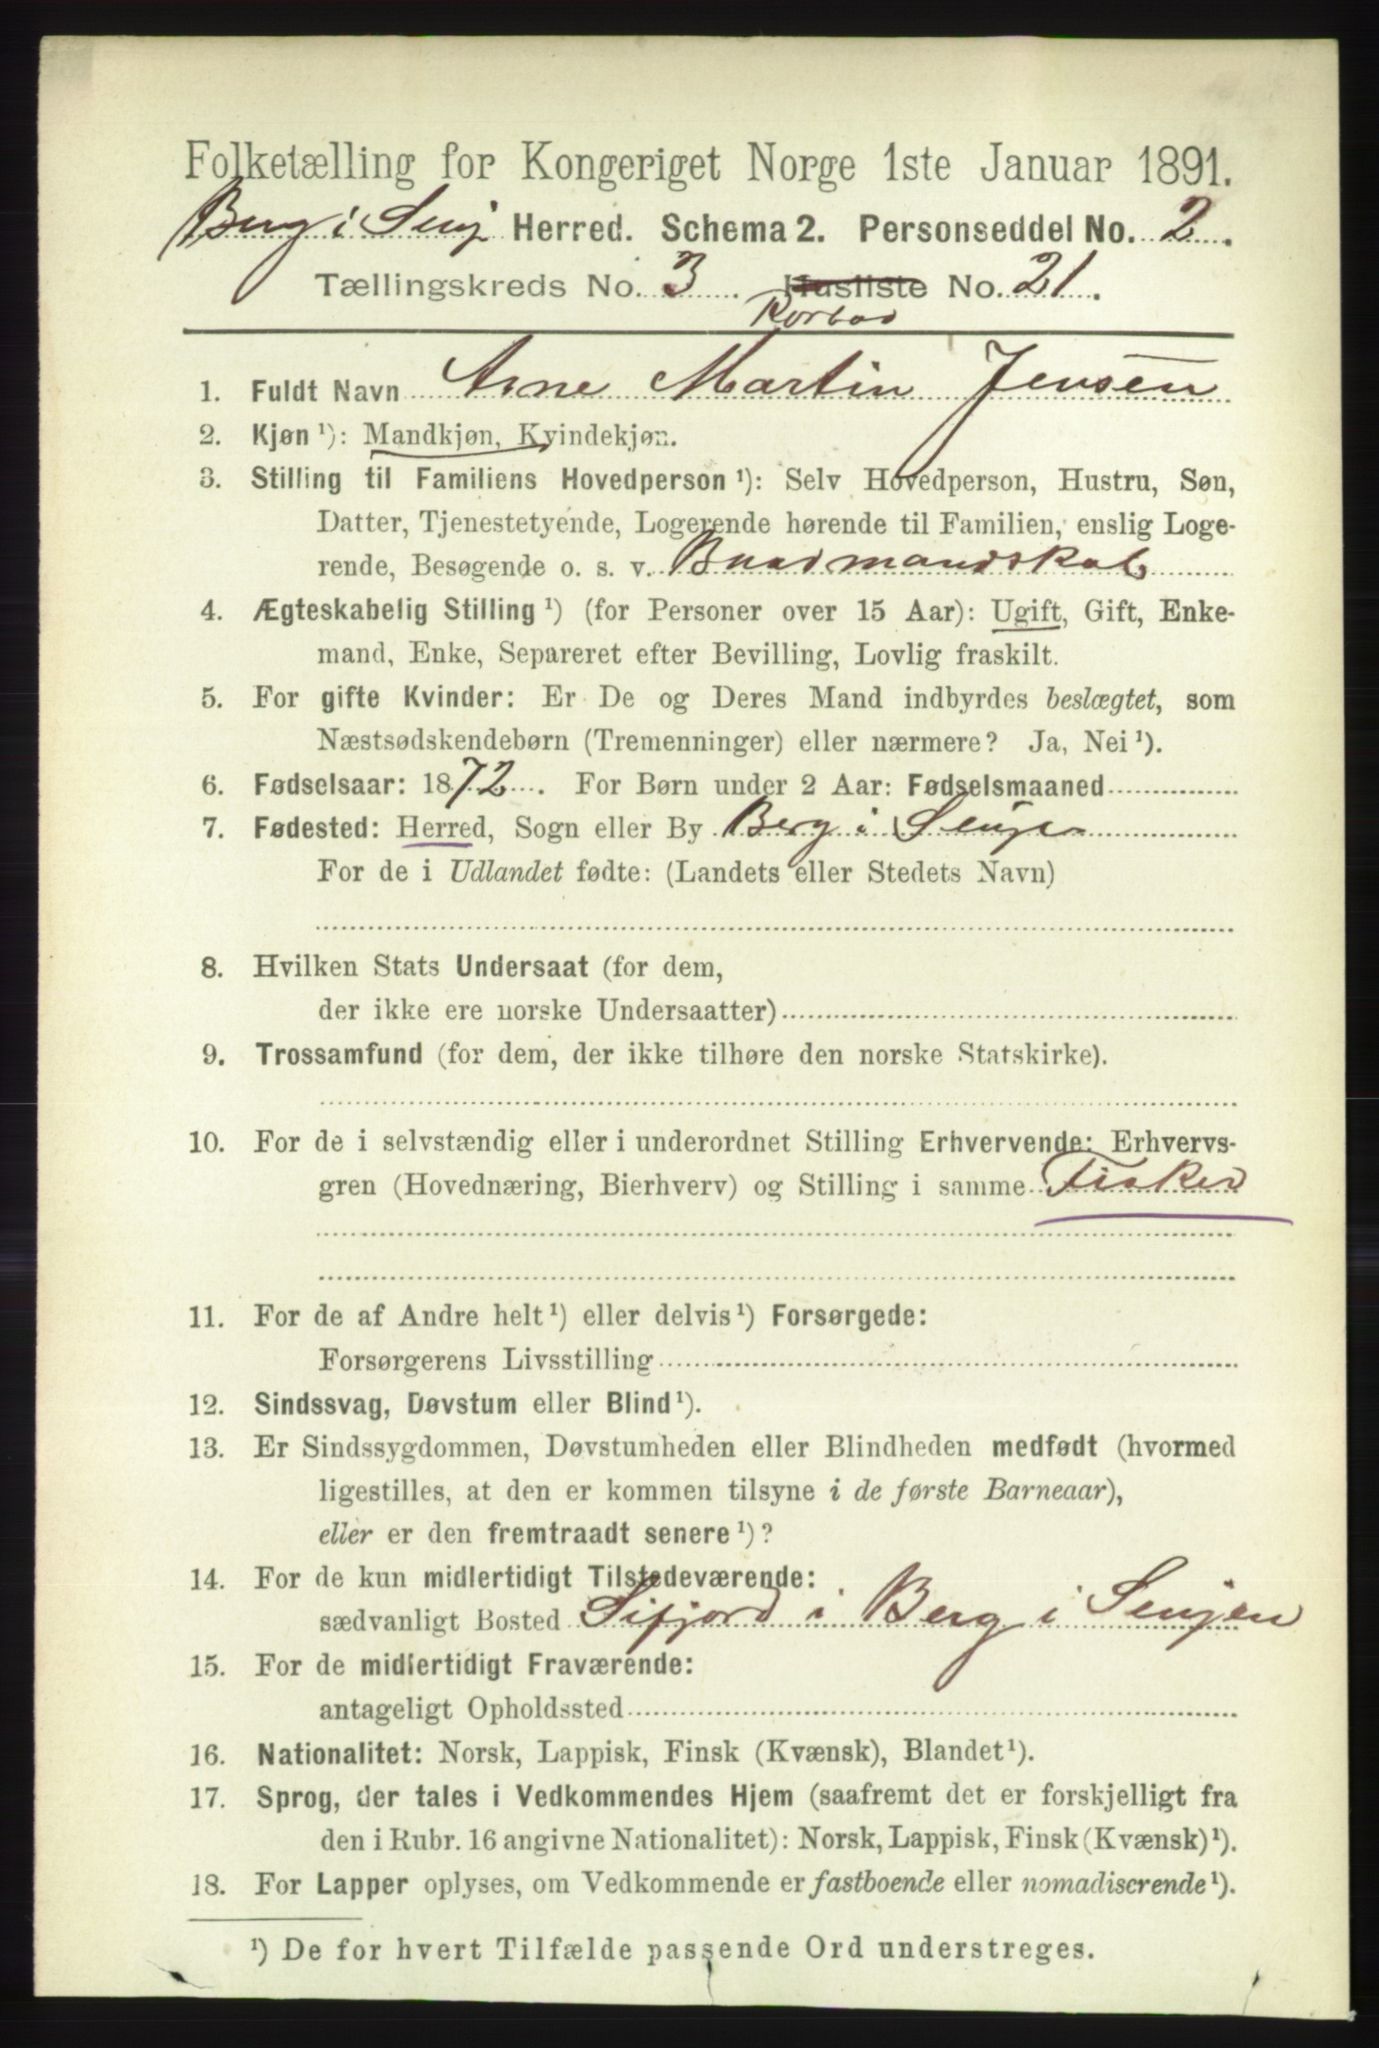 Folketælling for Kongeriget Norge 1ste Januar 1891.
Berg i Senj Herred. Schema 2. Personseddel No. 2.
Tællingskreds No. 3. Husliste No. 21.
Rorbod
1. Fuldt Navn Arne Martin Jensen
2. Kjøn ¹): Mandkjøn, Kvindekjøn.
3. Stilling til Familiens Hovedperson ¹): Selv Hovedperson, Hustru, Søn,
Datter, Tjenestetyende, Logerende hørende til Familien, enslig Loge-
rende, Besøgende o. s. v. Baadmandskab
4. Ægteskabelig Stilling ¹) (for Personer over 15 Aar): Ugift, Gift, Enke-
mand, Enke, Separeret efter Bevilling, Lovlig fraskilt.
5. For gifte Kvinder: Er De og Deres Mand indbyrdes beslægtet, som
Næstsødskendebørn (Tremenninger) eller nærmere? Ja, Nei ¹).
6. Fødselsaar: 1872. For Børn under 2 Aar: Fødselsmaaned
7. Fødested: Herred, Sogn eller By Berg i Senjen
For de i Udlandet fødte: (Landets eller Stedets Navn)
8. Hvilken Stats Undersaat (for dem,
der ikke ere norske Undersaatter)
9. Trossamfund (for dem, der ikke tilhøre den norske Statskirke).
10. For de i selvstændig eller i underordnet Stilling Erhvervende: Erhvervs-
gren (Hovednæring, Bierhverv) og Stilling i samme Fisker
11. For de af Andre helt ¹) eller delvis ¹) Forsørgede:
Forsørgerens Livsstilling
12. Sindssvag, Døvstum eller Blind ¹).
13. Er Sindssygdommen, Døvstumheden eller Blindheden medfødt (hvormed
ligestilles, at den er kommen tilsyne i de første Barneaar),
eller er den fremtraadt senere ¹)?
14. For de kun midlertidigt Tilstedeværende:
sædvanligt Bosted Sifjord i Berg i Senjen
15. For de midlertidigt Fraværende:
antageligt Opholdssted
16. Nationalitet: Norsk, Lappisk, Finsk (Kvænsk), Blandet ¹).
17. Sprog, der tales i Vedkommendes Hjem (saafremt det er forskjelligt fra
den i Rubr. 16 angivne Nationalitet): Norsk, Lappisk, Finsk (Kvænsk) ¹).
18. For Lapper oplyses, om Vedkommende er fastboende eller nomadiserende ¹).
¹) De for hvert Tilfælde passende Ord understreges.